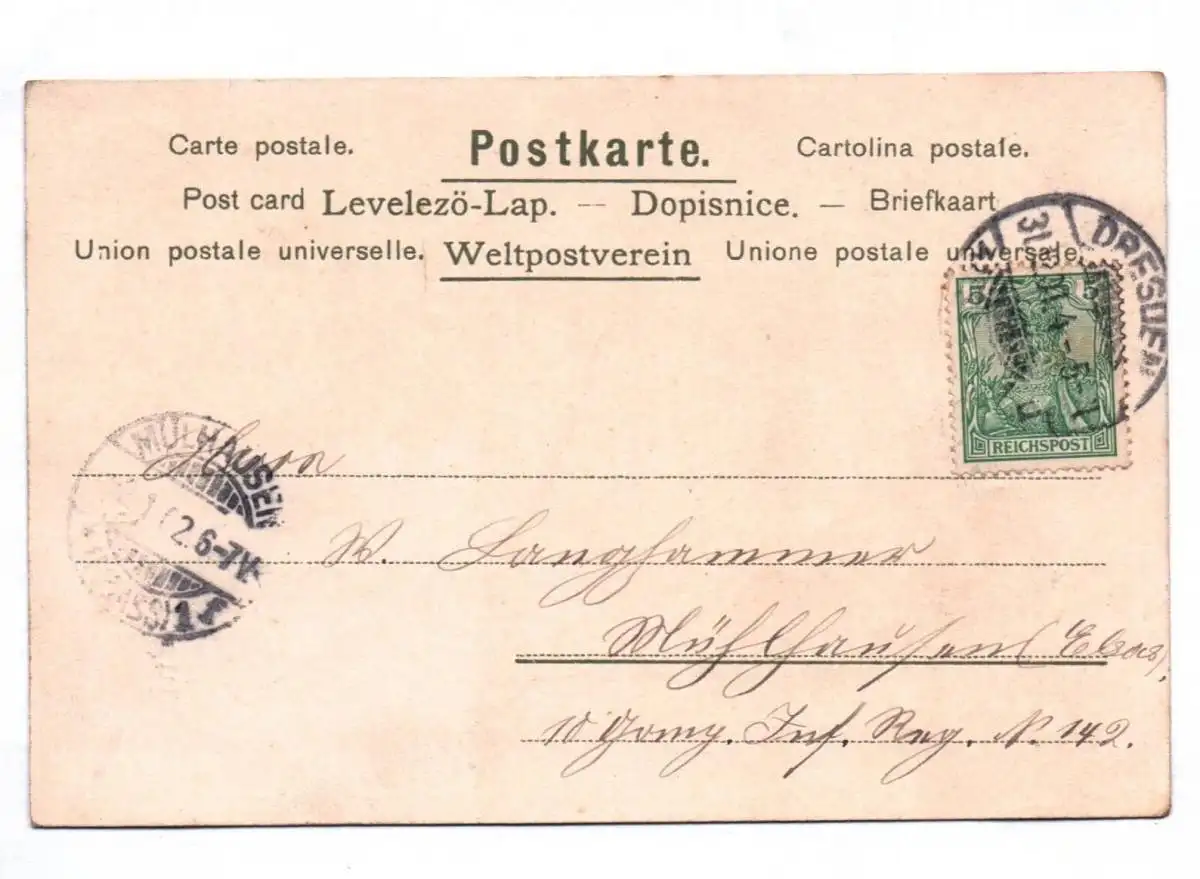 Carte postale. Postkarte. Cartolina postale.
Post card Levelezö-Lap. — Dopisnice. — Briefkaart
Union postale universelle. Weltpostverein Unione postale universale.
DRESDEN
31
5 5
REICHSPOST
MÜLHAUSEN
2.6-7V
1
Herrn
W. Langhammer
Mühlhausen (Elsas)
10 Comp. Inf. Reg. N. 142.